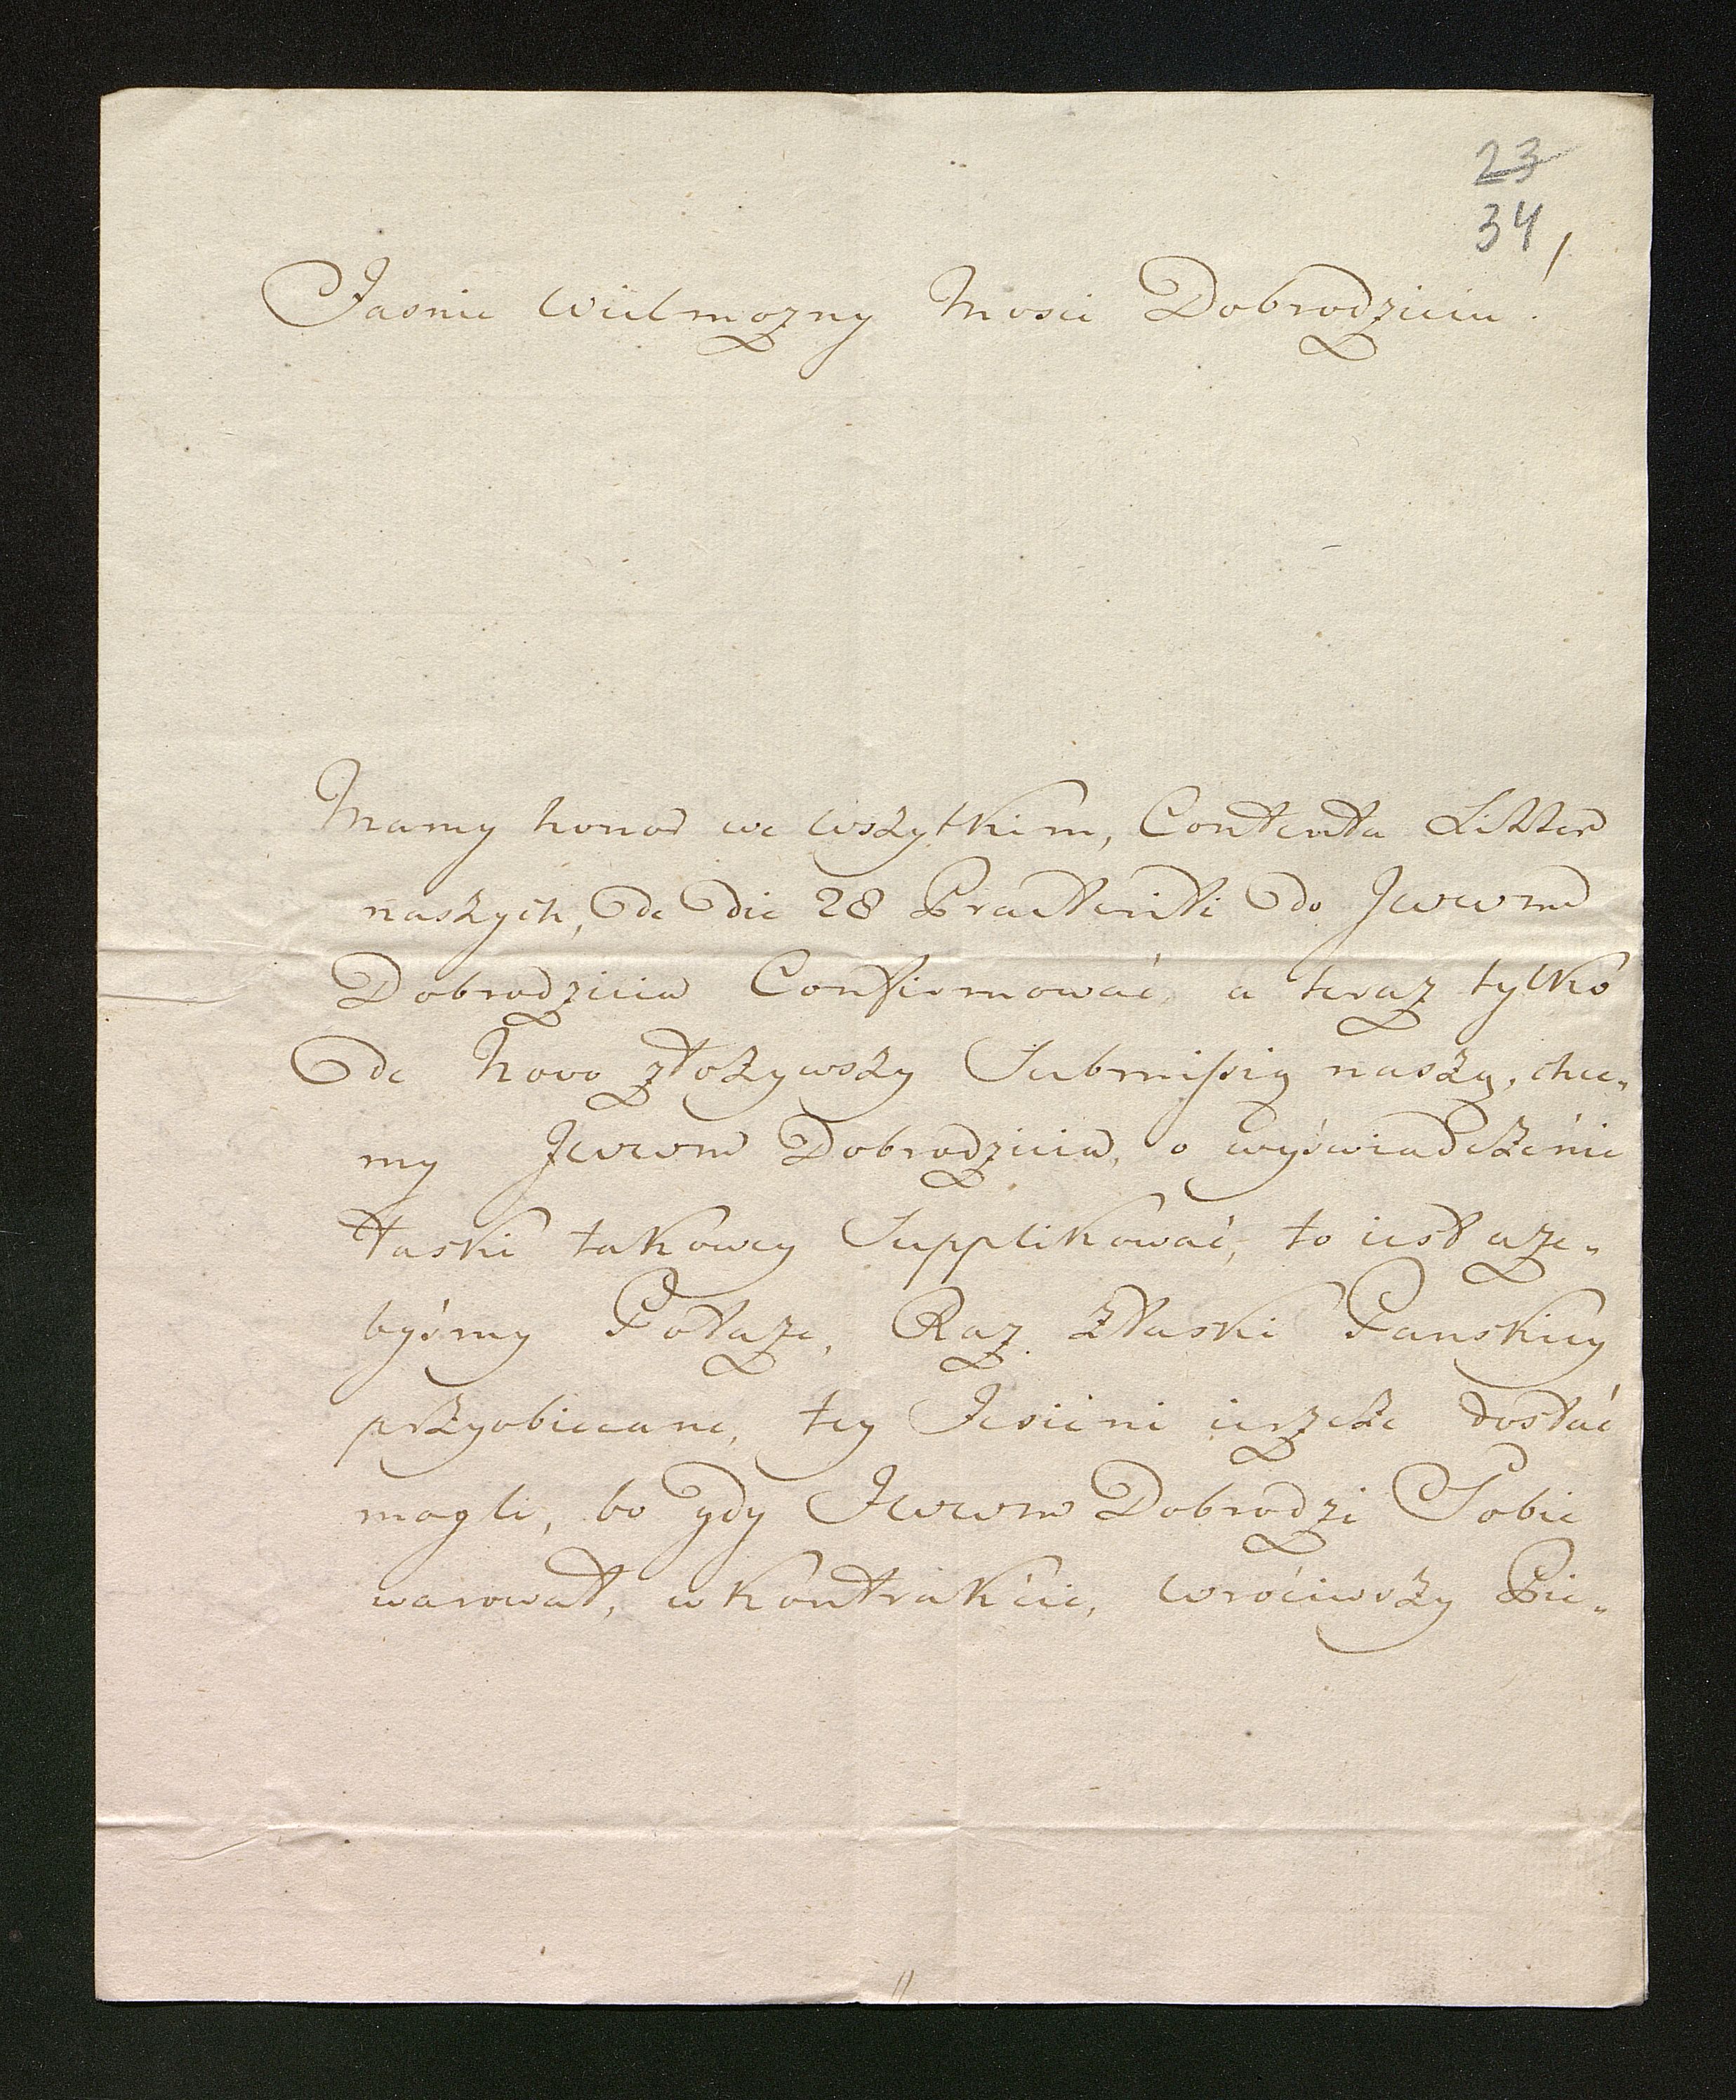 23
34
Jasnie Wielmozny Mosci Dobrodzieiu!
Mamy honor we wszytkim, Contenta Litter
naszych, de die 28 Praeteriti do Jwwm
Dobrodzieia Confirmować a teraz tylko
de Novo złożywszy Submißią naszą, chce-
my Jwwm Dobrodzieia, o wyświadczenie
łaski takowey Supplikować, to iest aże-
byśmy Potaże, Raz złaski Panskiey
przyobiecane, tey Jesieni ieszcze dostać
mogli, bo gdy Jwwm Dobrodzi Sobie
warował, w kontrakcie, wróciwszy Pie-